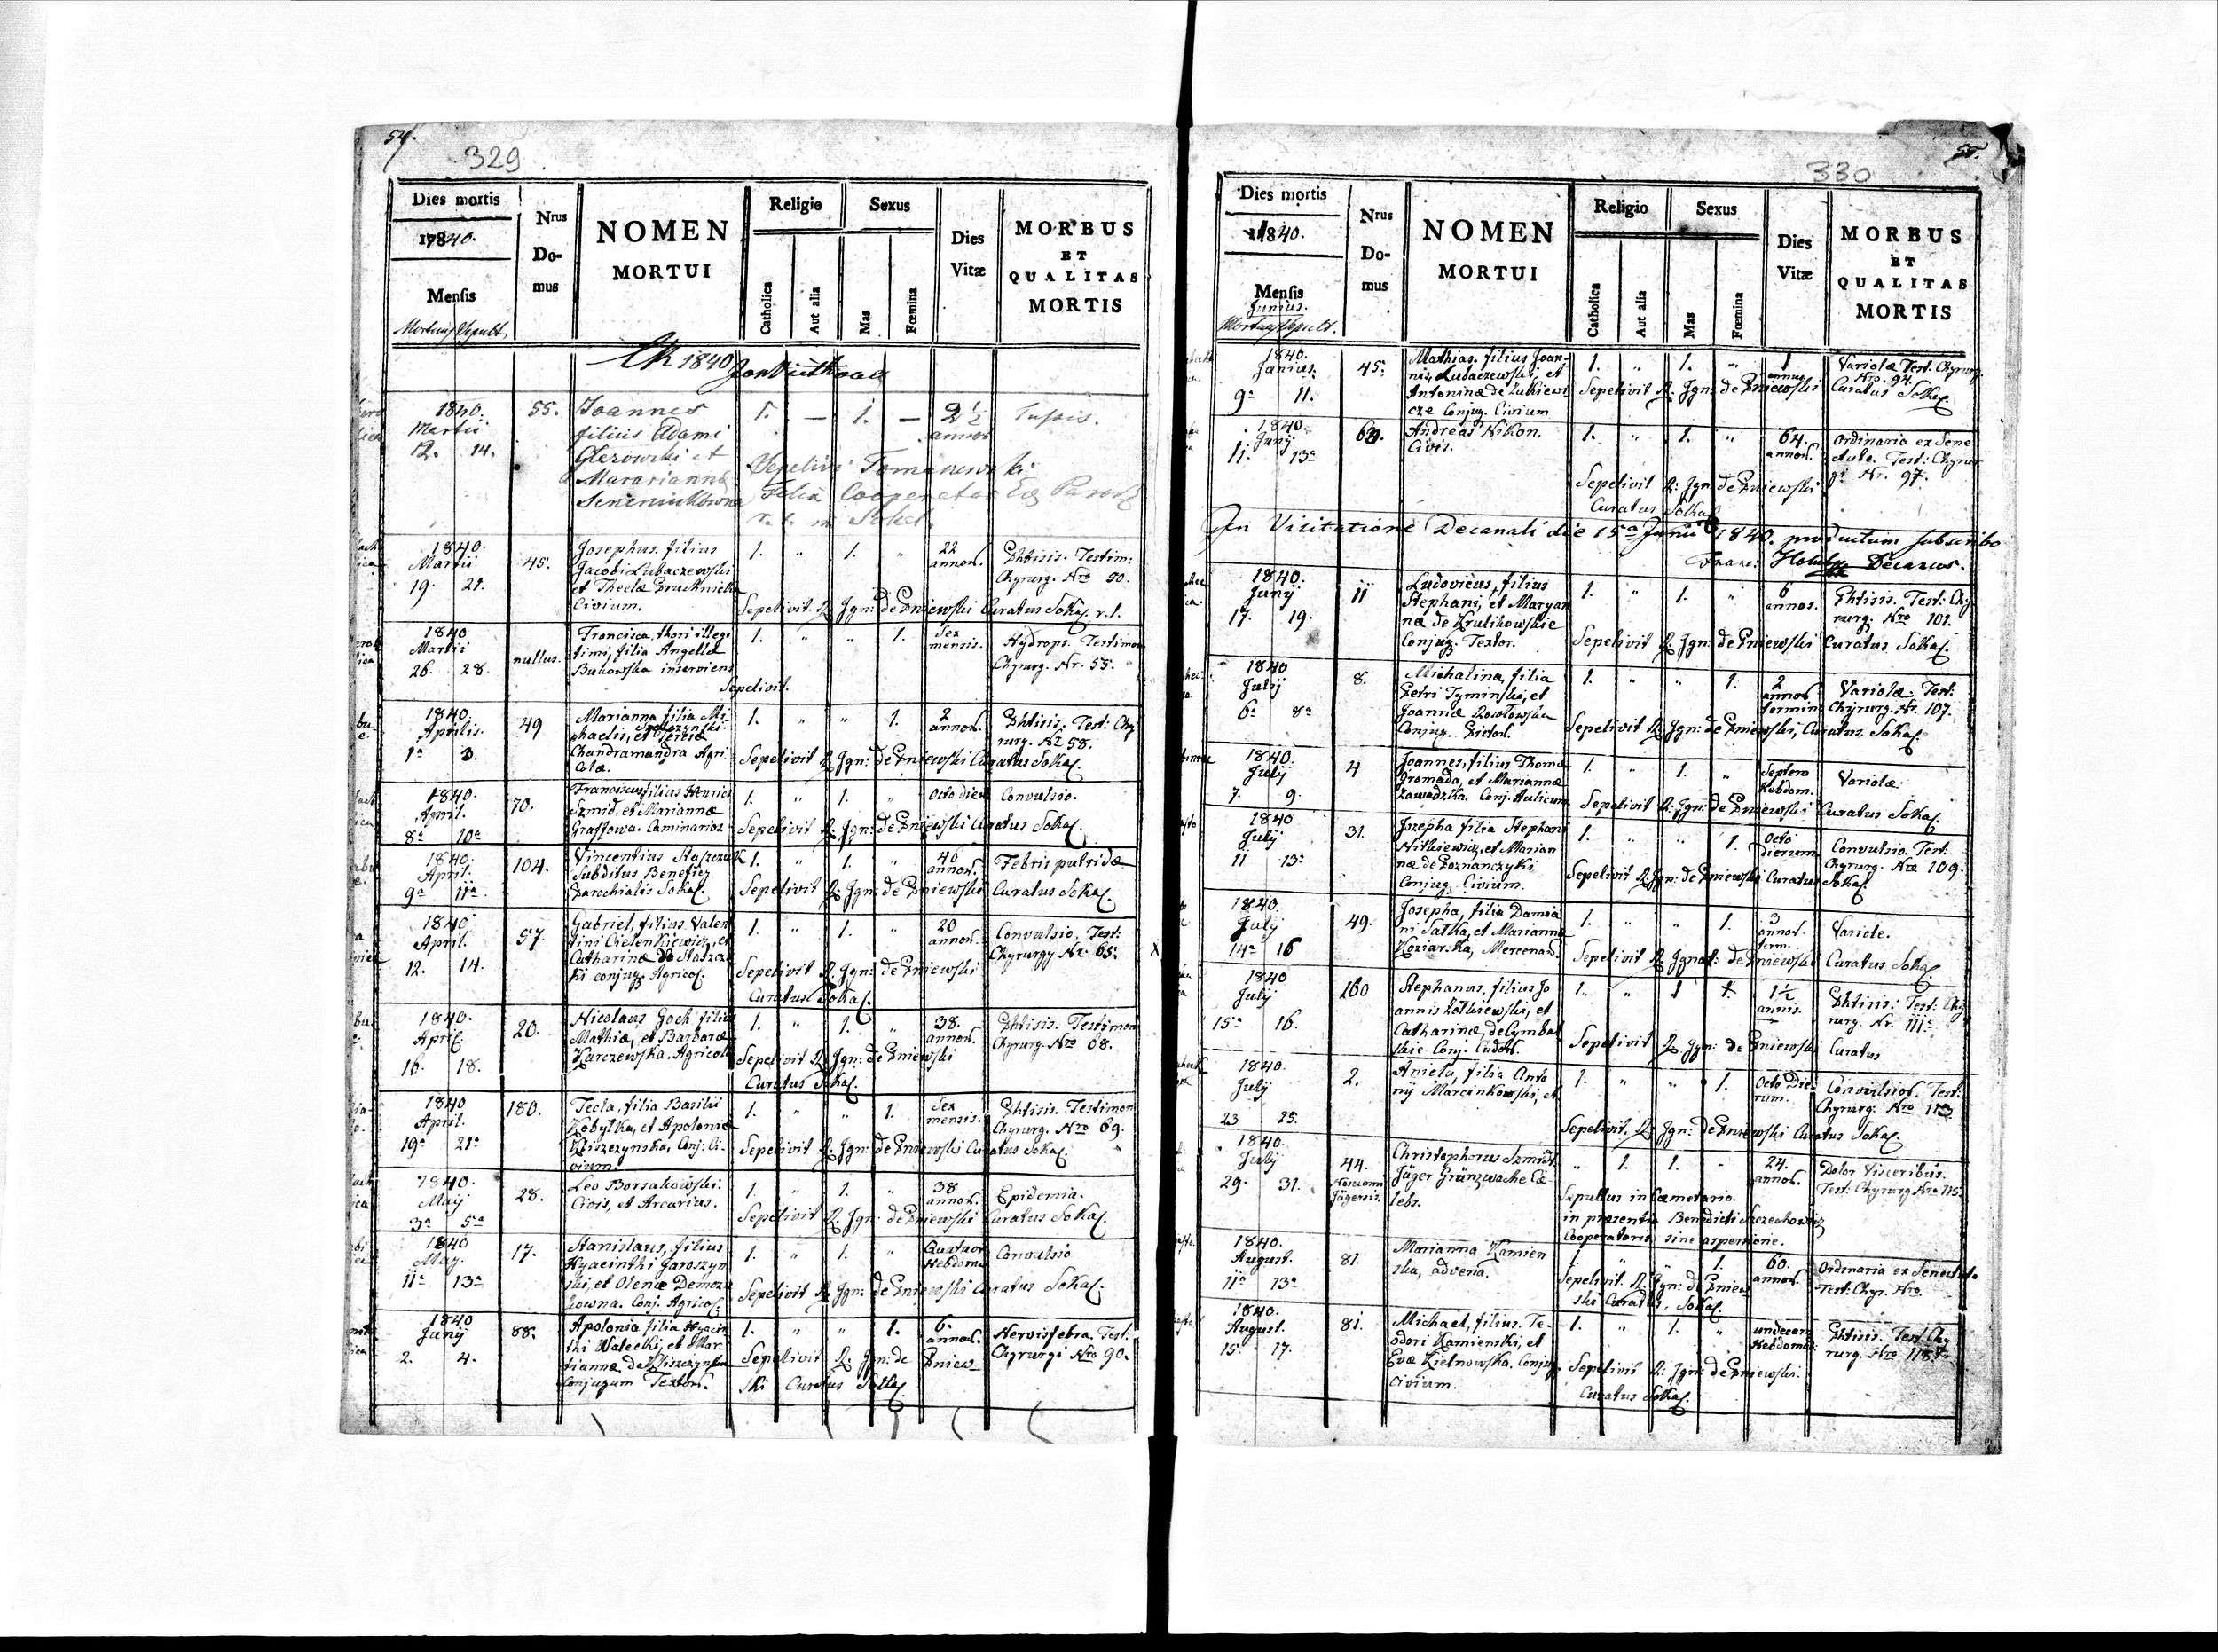 54.
329
Dies mortis
1840.
Mensis
Mortuus Sepult.
Nrus
Do-
mus
NOMEN
MORTUI
Religio
Catholica
Aut alia
Sexus
Mas
Fœmina
Dies
Vitæ
MORBUS
ET
QUALITAS
MORTIS
1840
1840.
Martii
12. 14.
55.
Joannes
filius Adami
Glezowski et
1. — 1. —
2 1/2
annor
Tussis.
Sepelivi Tomanewski
Felix Cooperator
r. l. in Sokal.
1840.
Martii
19 21.
45.
Josephus, filius
Jacobi Lubaczewski
et Theclæ Pruchnicka
Civium.
1. " 1. "
22
annor.
Phtisis. Testim:
Chyrurg. Nro 50.
Sepelivit R. Ign: de Pniewski Curatus Sokal. r. l.
1840
Martii
26. 28.
nullus.
Francisca, thori illegi
timi, filia Angellæ
Bukowska inserviens
1. " " 1.
Sex
mensis.
Hydrops. Testimon
Chyrurg. Nr. 55.
Sepelivit.
1840.
Aprilis.
1a 3.
49
Marianna filia Mi-
chaelis, et Teresiæ
Chandramandra Agri
Colæ.
1. " " 1.
2
annor.
Phtisis. Test: Chy
rurg. Nr 58.
Sepelivit R. Ign: de Pniewski Curatus Sokal.
1840.
April.
8a 10a
70.
Franciscus filius Henrici
Szmid, et Mariannæ
Graffowa. Caminarior
1. " 1. "
Octo dier
Convulsio.
Sepelivit R. Ign: de Pniewski Curatus Sokal.
1840.
April.
9a 11a
104.
Vincentius Staszczuk
Subditus Benefici
Parochialis Sokal.
1. " 1. "
46
annor.
Febris putridæ
Sepelivit R. Ign: de Pniewski Curatus Sokal.
1840
April.
12. 14.
57.
Gabriel, filius Valen
tini Cielenkiewicz, et
Catharinæ de Staszcz
ki conjug. Agricol.
1. " 1. "
20
annor.
Convulsio. Test:
Chyrurgy Nr: 65.
Sepelivit R. Ign: de Pniewski
Curatus Sokal.
1840.
April.
16. 18.
20.
Nicolaus Goch filius
Mathiæ, et Barbaræ
Karczewska. Agricola
1. " 1. "
38.
annor.
Phtisis. Testimon
Chyrurg. Nro 68.
Sepelivit R. Ign: de Pniewski
Curatus Sokal.
1840
April.
19a 21a
180.
Tecla, filia Basilii
Kobylka, et Apoloniæ
Kliszczynska, Conj: Ci-
vium.
1. " " 1.
Sex
mensis.
Phtisis. Testimon
Chyrurg. Nro 69.
Sepelivit R. Ign: de Pniewski Curatus Sokal.
1840.
Maij
3a 5ta
28.
Leo Borsakowski.
Civis, et Arcarius.
1. " 1. "
38
annor.
Epidemia.
Sepelivit R. Ign: de Pniewski Curatus Sokal.
1840
May.
11a 13a
17.
Stanislaus, filius
Hyacinthi Jaroszyn
ski, et Olenæ Demcz
kowna. Conj. Agricol.
1. " 1. "
Quatuor
Hebdoma
Convulsio
Sepelivit R. Ign: de Pniewski Curatus Sokal.
1840
Junij
2. 4.
88.
Apolonia filia Hyacin
thi Walecki, et Mar
iannæ de Kliszczynska
Conjugum Textor.
1. " " 1.
6.
annor.
Nervis febra. Test:
Chyrurgi Nro 90.
Sepelivit R: Ign: de Pniew
ski Curatus Sokal.
55.
330
Dies mortis
1840.
Mensis
Junius.
Mortuus Sepult.
Nrus
Do-
mus
NOMEN
MORTUI
Religio
Catholica
Aut alia
Sexus
Mas
Fœmina
Dies
Vitæ
MORBUS
ET
QUALITAS
MORTIS
1840.
Junius.
9a 11.
45.
Mathias, filius Joan-
nis Lubaczewski, et
Antoninæ de Lukiewi
cze Conjug. Civium
1. " 1. "
1
annus
Variolæ Test. Chyrurg.
Nro. 94.
Sepelivit R. Ign: de Pniewski Curatus Sokal.
1840.
Junij
11. 13a
69.
Andreas Nikon.
Civis.
1. " 1. "
64.
annor.
Ordinaria ex Sene
ctute. Test: Chyrur
gi Nr. 97.
Sepelivit R: Ign: de Pniewski
Curatus Sokal.
In Visitatione Decanali die 15a Junii 1840. productum subscribo
Franc: Decanus.
1840.
Junij
17. 19.
11
Ludovicus, filius
Stephani, et Maryan
næ de Krulikowskie
Conjug. Textor.
1. " 1. "
6
annor.
Phtisis. Test: Chy
rurg. Nro 101.
Sepelivit R: Ign: de Pniewski Curatus Sokal.
1840
Julij
6a 8a
8.
Michalina, filia
Petri Tyminski, et
Joannæ Rosołowska
Conjug. Pictor.
1. " " 1.
2
annor
termin
Variolæ. Test:
Chyrurg. Nr. 107.
Sepelivit R. Ign: de Pniewski, Curatus Sokal.
1840.
July
7. 9.
4
Joannes, filius Thomæ
Gromada, et Mariannæ
Zawadzka. Conj. Aulicum
1. " 1. "
Septem
hebdom.
Variolæ.
Sepelivit R: Ign: de Pniewski Curatus Sokal.
1840
July
11 13a
31.
Jozepha filia Stephani
Nitkiewicz, et Marian
næ de Poznanczyki
Conjug. Civium.
1. " " 1.
Octo
dierum
Convulsio. Test:
Chyrurg. Nro 109.
Sepelivit R. Ign: de Pniewski Curatus Sokal.
1840
July
14a 16
49.
Josepha, filia Damia
ni Satka, et Marianna
Koziarska, Mercenar.
1. " " 1.
3
annor.
term.
Variole.
Sepelivit R Ignat: de Pniewski Curatus Sokal.
1840
July
15a 16.
160
Stephanus, filius Jo
annis Zolkiewski, et
Catharinæ, de Cymbal
skie Conj. Cudon.
1. " 1 1.
1 1/2
annis.
Phtisis: Test: Chy
rurg. Nr. 111a
Sepelivit R Ign: de Pniewski Curatus
1840.
July
23 25.
2.
Aniela, filia Anto
nij Marcinkowski, et
1. " " 1.
Octo Die
rum.
Convulsior. Test:
Chyrurg. Nro 113
Sepelivit. R. Ign: de Pniewski Curatus Sokal.
1840.
July
29. 31.
44.
Christophorus Szmidt.
Jäger Gränzwache Cæ
lebs.
" 1. 1. "
24.
annor.
Dolor Visceribus.
Test: Chyrurg Nro 115.
Sepultus in Cæmetario.
in præsentia Benedicti Szczechowicz
Cooperatoris sine aspersione.
1840.
August.
11a 13a
81.
Marianna Kamien
ska, advena.
1. " " 1.
60.
annor.
Ordinaria ex Senectute
Test: Chyr. Nro
Sepelivit. R. Ign: de Pniew
ski Curatus. Sokal.
1840.
August.
15a 17.
81.
Michael, filius Te-
odori Kamienski, et
Evæ Kielnowska, Conjug.
Civium.
1. " 1. "
undecem
Hebdomad:
Phtisis. Test. Chy
rurg. Nro 118.
Sepelivit R: Ign: de Pniewski.
Curatus Sokal.